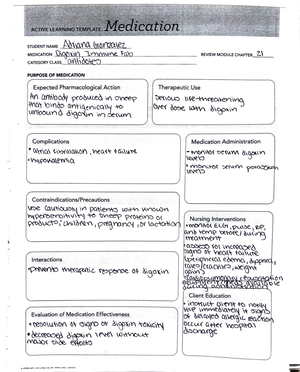 ACTIVE LEARNING TEMPLATE: Medication
STUDENT NAME Adriana Gonzalez
MEDICATION Digoxin Immune Fab
REVIEW MODULE CHAPTER 21
CATEGORY CLASS antidotes
PURPOSE OF MEDICATION
Expected Pharmacological Action
An antibody produced in sheep
that binds antigenically to
unbound digoxin in serum
Therapeutic Use
serious life-threatening
over dose with digoxin
Complications
* atrial fibrillation, heart failure
* hypokalemia
Medication Administration
* monitor serum digoxin
levels
* monitor serum potassium
levels
Contraindications/Precautions
use cautiously in patients with known
hypersensitivity to sheep proteins or
products; children, pregnancy, or lactation
Nursing Interventions
* monitor ECG, pulse, BP,
and temp before/during
treatment
* assess for increased
signs of heart failure
(peripheral edema, dyspnea,
rales/crackles, weight
gain)
* cardiopulmonary resuscitation
equipment available
during
Interactions
* prevents therapeutic response of digoxin
Evaluation of Medication Effectiveness
* resolution of signs of digoxin toxicity
* decreased digoxin level without
major side effects
Client Education
* instruct client to notify
HCP immediately if signs
of delayed allergic reaction
occur after hospital
discharge